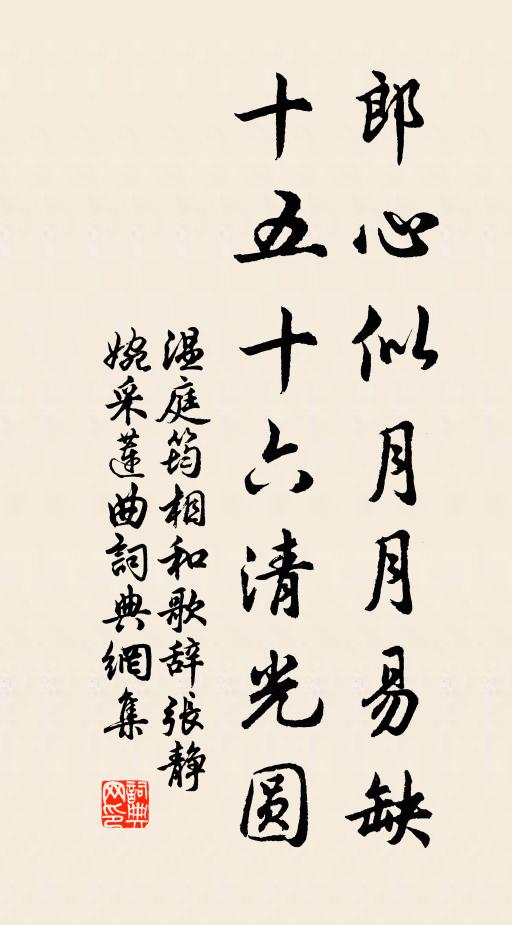 郎心似月月易缺
十五十六清光圆
温庭筠相和歌辞張静
婉采蓮曲詞典網集
詞典
网印